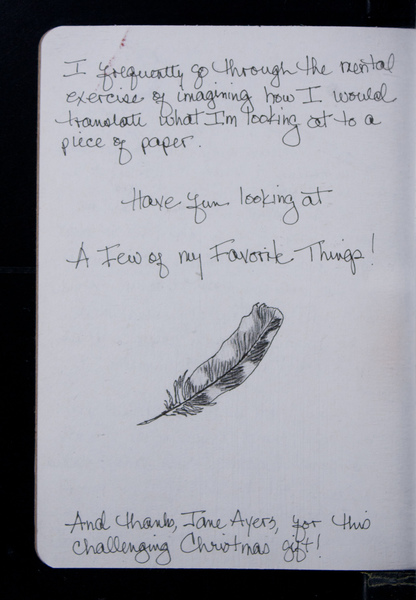 I frequently go through the mental
exercise of imagining how I would
translate what I'm looking at to a
piece of paper.
Have fun looking at
A Few of my Favorite Things!
And thanks, Jane Ayers, for this
challenging Christmas gift!